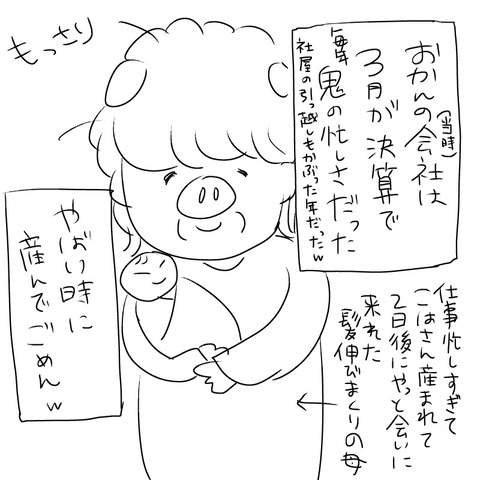 おかんの会社は
（当時）
3月が決算で
毎年
鬼の忙しさだった
社屋の引っ越しもかぶった年だったw
もっさり
やばい時に
産んでごめんw
仕事忙しすぎて
こはさん産まれて
2日後にやっと会いに
来れた
髪伸びまくりの母